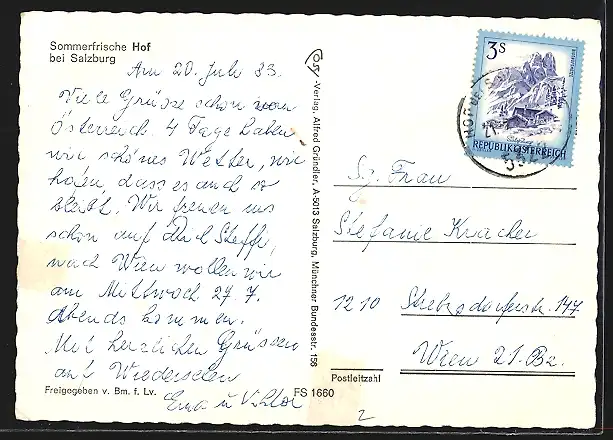 Sommerfrische Hof
bei Salzburg
Am 20. Juli 83.
Viele Grüsse schon von
Österreich. 4 Tage haben
wir schönes Wetter, wir
hofen, dass es auch so
bleibt. Wir freuen uns
schon auf dich Steffi,
nach Wien wollen wir
am Mittwoch 27. 7.
Abends kommen.
Mit herzlichen Grüssen
auf Wiedersehen
Erna u Viktor
Freigegeben v. Bm. f. Lv.
FS 1660
Ösy-Verlag, Alfred Gründler, A-5013 Salzburg, Münchner Bundesstr. 156
3S
REPUBLIK ÖSTERREICH
HOF BEI S
Sg. Frau
Stefanie
1210
147
Wien 21. Bz.
Postleitzahl
2